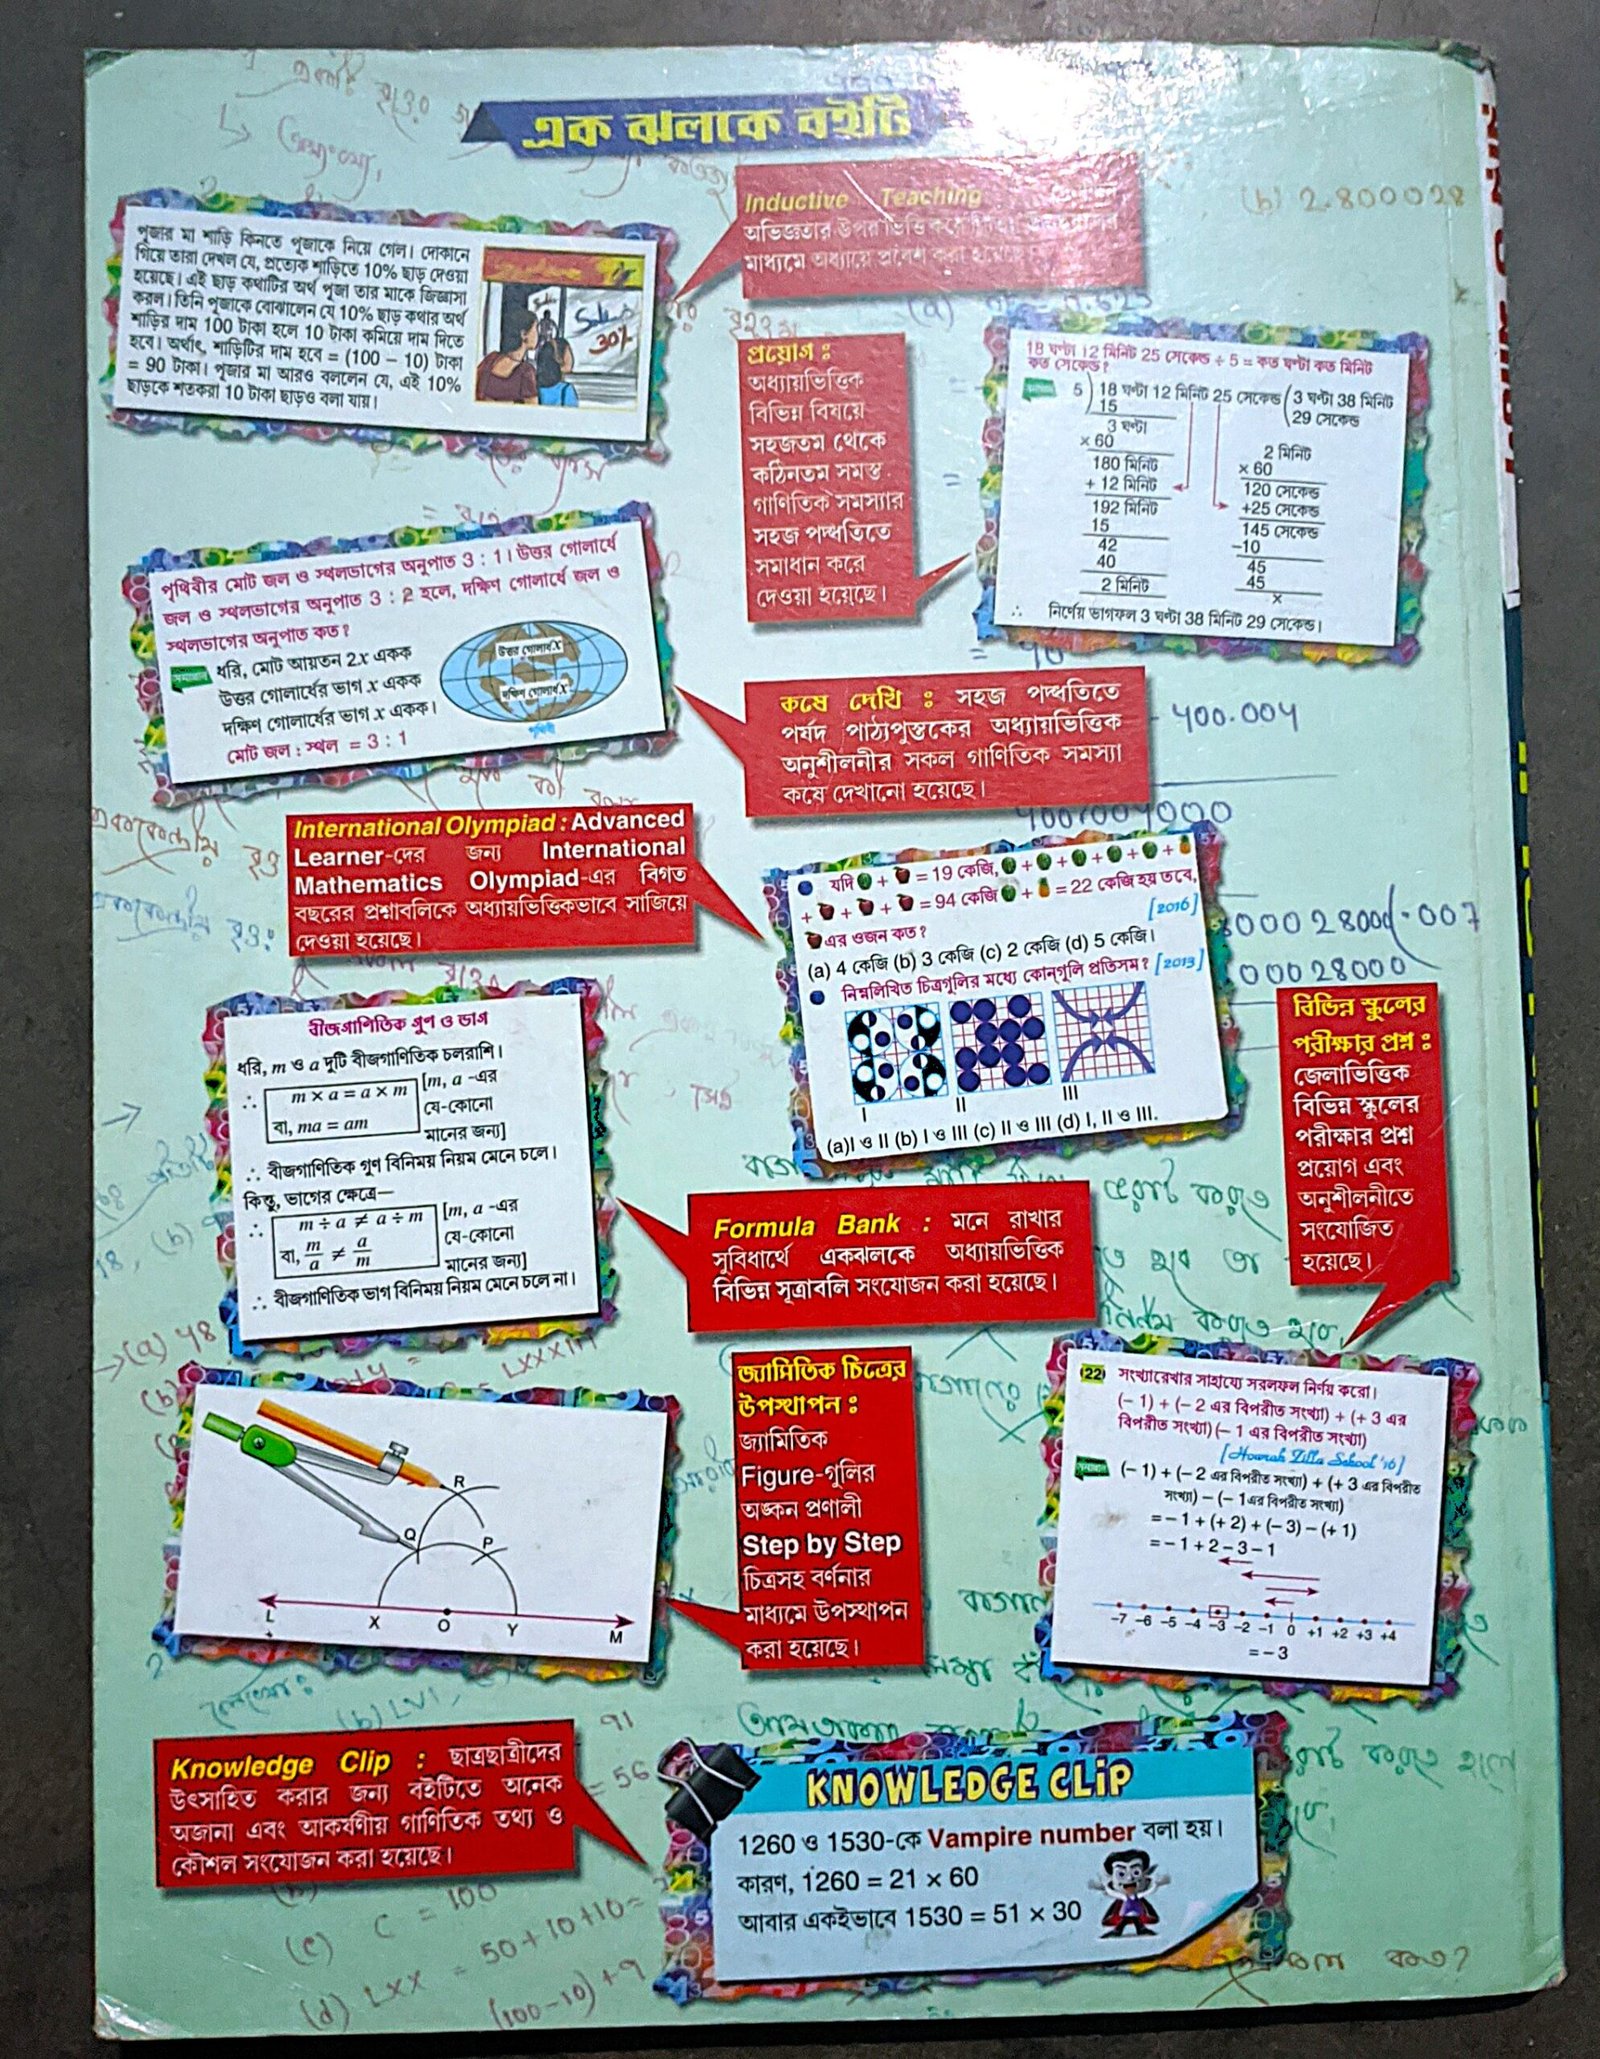 এক ঝলকে বইটি
Inductive Teaching
মাধ্যমে অধ্যায়ে প্রবেশ করা হয়েছে
পূজার মা শাড়ি কিনতে পূজাকে নিয়ে গেল। দোকানে
গিয়ে তারা দেখল যে, প্রত্যেক শাড়িতে 10% ছাড় দেওয়া
হয়েছে। এই ছাড় কথাটির অর্থ পূজা তার মাকে জিজ্ঞাসা
করল। তিনি পূজাকে বোঝালেন যে 10% ছাড় কথার অর্থ
শাড়ির দাম 100 টাকা হলে 10 টাকা কমিয়ে দাম দিতে
হবে। অর্থাৎ, শাড়িটির দাম হবে = (100 – 10) টাকা
= 90 টাকা। পূজার মা আরও বললেন যে, এই 10%
ছাড়কে শতকরা 10 টাকা ছাড়ও বলা যায়।
30%
প্রয়োগ :
অধ্যায়ভিত্তিক
বিভিন্ন বিষয়ে
সহজতম থেকে
কঠিনতম সমস্ত
গাণিতিক সমস্যার
সহজ পদ্ধতিতে
সমাধান করে
দেওয়া হয়েছে।
18 ঘণ্টা 12 মিনিট 25 সেকেন্ড ÷ 5 = কত ঘণ্টা কত মিনিট
কত সেকেন্ড?
5 ) 18 ঘণ্টা 12 মিনিট 25 সেকেন্ড ( 3 ঘণ্টা 38 মিনিট
15 29 সেকেন্ড
3 ঘণ্টা
× 60 2 মিনিট
180 মিনিট × 60
+ 12 মিনিট 120 সেকেন্ড
192 মিনিট +25 সেকেন্ড
15 145 সেকেন্ড
42 –10
40 45
2 মিনিট 45
x
∴ নির্ণেয় ভাগফল 3 ঘণ্টা 38 মিনিট 29 সেকেন্ড।
পৃথিবীর মোট জল ও স্থলভাগের অনুপাত 3 : 1। উত্তর গোলার্ধে
জল ও স্থলভাগের অনুপাত 3 : 2 হলে, দক্ষিণ গোলার্ধে জল ও
স্থলভাগের অনুপাত কত?
সমাধান ধরি, মোট আয়তন 2x একক
উত্তর গোলার্ধের ভাগ x একক
দক্ষিণ গোলার্ধের ভাগ x একক।
মোট জল : স্থল = 3 : 1
উত্তর গোলার্ধ x
দক্ষিণ গোলার্ধ x
পৃথিবী
কষে দেখি : সহজ পদ্ধতিতে
পর্ষদ পাঠ্যপুস্তকের অধ্যায়ভিত্তিক
অনুশীলনীর সকল গাণিতিক সমস্যা
কষে দেখানো হয়েছে।
International Olympiad : Advanced
Learner-দের জন্য International
Mathematics Olympiad-এর বিগত
বছরের প্রশ্নাবলিকে অধ্যায়ভিত্তিকভাবে সাজিয়ে
দেওয়া হয়েছে।
যদি + = 19 কেজি, + + + + +
+ + + = 94 কেজি + = 22 কেজি হয় তবে,
এর ওজন কত? [2016]
(a) 4 কেজি (b) 3 কেজি (c) 2 কেজি (d) 5 কেজি।
নিম্নলিখিত চিত্রগুলির মধ্যে কোন্‌গুলি প্রতিসম? [2013]
I II III
(a) I ও II (b) I ও III (c) II ও III (d) I, II ও III.
বিভিন্ন স্কুলের
পরীক্ষার প্রশ্ন :
জেলাভিত্তিক
বিভিন্ন স্কুলের
পরীক্ষার প্রশ্ন
প্রয়োগ এবং
অনুশীলনীতে
সংযোজিত
হয়েছে।
বীজগাণিতিক গুণ ও ভাগ
ধরি, m ও a দুটি বীজগাণিতিক চলরাশি।
∴ m × a = a × m [m, a -এর
বা, ma = am যে-কোনো
মানের জন্য]
∴ বীজগাণিতিক গুণ বিনিময় নিয়ম মেনে চলে।
কিন্তু, ভাগের ক্ষেত্রে—
∴ m ÷ a ≠ a ÷ m [m, a -এর
বা, m/a ≠ a/m যে-কোনো
মানের জন্য]
∴ বীজগাণিতিক ভাগ বিনিময় নিয়ম মেনে চলে না।
Formula Bank : মনে রাখার
সুবিধার্থে একঝলকে অধ্যায়ভিত্তিক
বিভিন্ন সূত্রাবলি সংযোজন করা হয়েছে।
জ্যামিতিক চিত্রের
উপস্থাপন :
জ্যামিতিক
Figure-গুলির
অঙ্কন প্রণালী
Step by Step
চিত্রসহ বর্ণনার
মাধ্যমে উপস্থাপন
করা হয়েছে।
R
Q
P
L X O Y M
22 সংখ্যারেখার সাহায্যে সরলফল নির্ণয় করো।
(– 1) + (– 2 এর বিপরীত সংখ্যা) + (+ 3 এর
বিপরীত সংখ্যা) (– 1 এর বিপরীত সংখ্যা)
[Howrah Zilla School '16]
সমাধান (– 1) + (– 2 এর বিপরীত সংখ্যা) + (+ 3 এর বিপরীত
সংখ্যা) – (– 1এর বিপরীত সংখ্যা)
= – 1 + (+ 2) + (– 3) – (+ 1)
= – 1 + 2 – 3 – 1
–7 –6 –5 –4 –3 –2 –1 0 +1 +2 +3 +4
= – 3
Knowledge Clip : ছাত্রছাত্রীদের
উৎসাহিত করার জন্য বইটিতে অনেক
অজানা এবং আকর্ষণীয় গাণিতিক তথ্য ও
কৌশল সংযোজন করা হয়েছে।
KNOWLEDGE CLiP
1260 ও 1530-কে Vampire number বলা হয়।
কারণ, 1260 = 21 × 60
আবার একইভাবে 1530 = 51 × 30
(b) 2.800028
400.004
(c) C = 100
(d) LXX = 50+10+10=
(100-10)+9